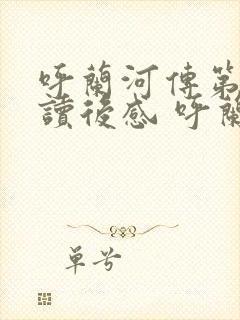 呼蘭河傳第
讀後感 呼蘭
單兮